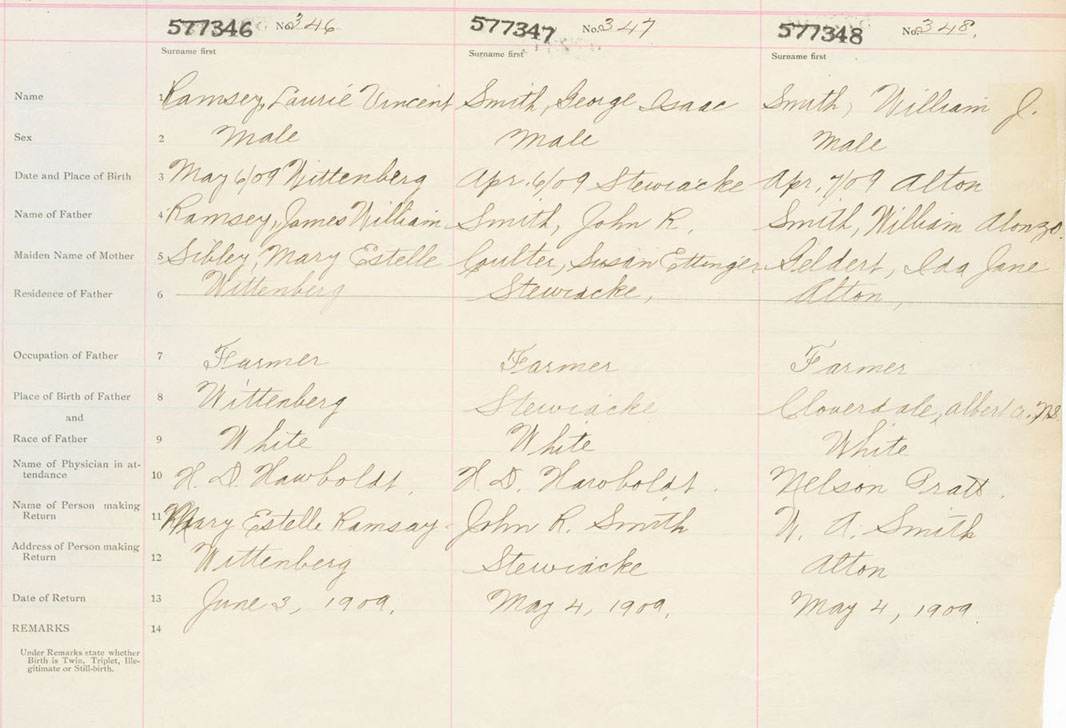 577346 No. 346. 577347 No. 347 577348 No. 348.
Surname first Surname first Surname first
Name 1 Ramsey, Laurie Vincent Smith, George Isaac Smith, William J.
Sex 2 Male Male Male
Date and Place of Birth 3 May 6/09 Wittenberg Apr. 6/09 Stewiacke Apr. 7/09 Alton
Name of Father 4 Ramsey, James William Smith, John R. Smith, William Alonzo.
Maiden Name of Mother 5 Sibley, Mary Estelle Coulter, Susan Ettinger Geldert, Ida Jane
Residence of Father 6 Wittenberg Stewiacke, Alton,
Occupation of Father 7 Farmer Farmer Farmer
Place of Birth of Father 8 Wittenberg Stewiacke Cloverdale, Albert Co. N.B.
and
Race of Father 9 White White White
Name of Physician in at-
tendance 10 H. D. Hawboldt. H. D. Hawboldt. Nelson Pratt.
Name of Person making
Return 11 Mary Estelle Ramsay John R. Smith W. A. Smith
Address of Person making
Return 12 Wittenberg Stewiacke Alton
Date of Return 13 June 3, 1909. May 4, 1909. May 4, 1909.
REMARKS 14
Under Remarks state whether
Birth is Twin, Triplet, Ille-
gitimate or Still-birth.